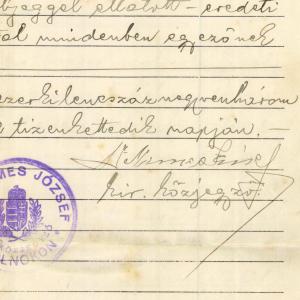 bjeggel ellátott – eredeti
ál mindenben egyezőnek
ezerkilencszáznegyvenhárom
tizenkettedik napján. –
kir. közjegyző
MES JÓZSEF
LNOKON